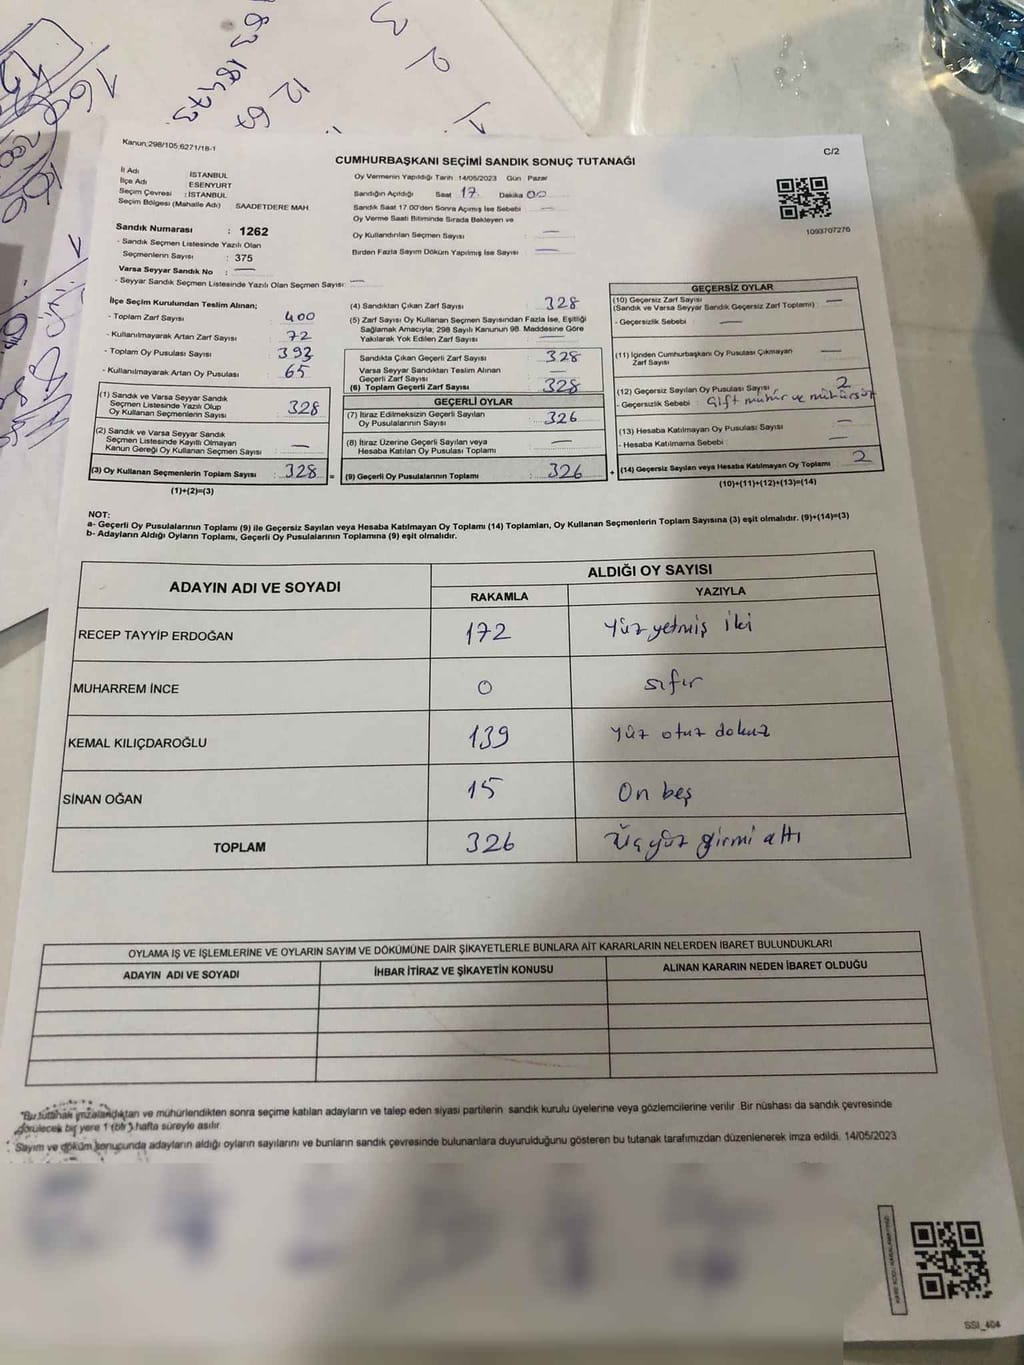 Kanun;298/105;6271/18-1
C/2
CUMHURBAŞKANI SEÇİMİ SANDIK SONUÇ TUTANAĞI
İl Adı İSTANBUL
İlçe Adı ESENYURT
Seçim Çevresi : İSTANBUL
Seçim Bölgesi (Mahalle Adı) SAADETDERE MAH.
Sandık Numarası : 1262
- Sandık Seçmen Listesinde Yazılı Olan
Seçmenlerin Sayısı : 375
Varsa Seyyar Sandık No : —
- Seyyar Sandık Seçmen Listesinde Yazılı Olan Seçmen Sayısı: —
Oy Vermenin Yapıldığı Tarih :14/05/2023 Gün : Pazar
Sandığın Açıldığı Saat 17 Dakika 00
Sandık Saat 17.00'den Sonra Açılmış İse Sebebi —
Oy Verme Saati Bitiminde Sırada Bekleyen ve
Oy Kullandırılan Seçmen Sayısı : —
Birden Fazla Sayım Döküm Yapılmış İse Sayısı : —
1093707276
İlçe Seçim Kurulundan Teslim Alınan;
- Toplam Zarf Sayısı : 400
- Kullanılmayarak Artan Zarf Sayısı : 72
- Toplam Oy Pusulası Sayısı : 393
- Kullanılmayarak Artan Oy Pusulası : 65
(1) Sandık ve Varsa Seyyar Sandık
Seçmen Listesinde Yazılı Olup
Oy Kullanan Seçmenlerin Sayısı : 328
(2) Sandık ve Varsa Seyyar Sandık
Seçmen Listesinde Kayıtlı Olmayan
Kanun Gereği Oy Kullanan Seçmen Sayısı : —
(3) Oy Kullanan Seçmenlerin Toplam Sayısı : 328
(1)+(2)=(3)
(4) Sandıktan Çıkan Zarf Sayısı : 328
(5) Zarf Sayısı Oy Kullanan Seçmen Sayısından Fazla İse, Eşitliği
Sağlamak Amacıyla; 298 Sayılı Kanunun 98. Maddesine Göre
Yakılarak Yok Edilen Zarf Sayısı : —
Sandıkta Çıkan Geçerli Zarf Sayısı : 328
Varsa Seyyar Sandıktan Teslim Alınan
Geçerli Zarf Sayısı : —
(6) Toplam Geçerli Zarf Sayısı : 328
GEÇERLİ OYLAR
(7) İtiraz Edilmeksizin Geçerli Sayılan
Oy Pusulalarının Sayısı : 326
(8) İtiraz Üzerine Geçerli Sayılan veya
Hesaba Katılan Oy Pusulası Toplamı : —
= (9) Geçerli Oy Pusulalarının Toplamı : 326
GEÇERSİZ OYLAR
(10) Geçersiz Zarf Sayısı : —
(Sandık ve Varsa Seyyar Sandık Geçersiz Zarf Toplamı)
- Geçersizlik Sebebi : —
(11) İçinden Cumhurbaşkanı Oy Pusulası Çıkmayan
Zarf Sayısı : —
(12) Geçersiz Sayılan Oy Pusulası Sayısı : 2
- Geçersizlik Sebebi : Çift mühür ve mühürsüz
(13) Hesaba Katılmayan Oy Pusulası Sayısı : —
- Hesaba Katılmama Sebebi : —
+ (14) Geçersiz Sayılan veya Hesaba Katılmayan Oy Toplamı : 2
(10)+(11)+(12)+(13)=(14)
NOT:
a- Geçerli Oy Pusulalarının Toplamı (9) ile Geçersiz Sayılan veya Hesaba Katılmayan Oy Toplamı (14) Toplamları, Oy Kullanan Seçmenlerin Toplam Sayısına (3) eşit olmalıdır. (9)+(14)=(3)
b- Adayların Aldığı Oyların Toplamı, Geçerli Oy Pusulalarının Toplamına (9) eşit olmalıdır.
ADAYIN ADI VE SOYADI ALDIĞI OY SAYISI
RAKAMLA YAZIYLA
RECEP TAYYİP ERDOĞAN 172 Yüz yetmiş iki
MUHARREM İNCE 0 sıfır
KEMAL KILIÇDAROĞLU 139 Yüz otuz dokuz
SİNAN OĞAN 15 On beş
TOPLAM 326 Üçyüz yirmi altı
OYLAMA İŞ VE İŞLEMLERİNE VE OYLARIN SAYIM VE DÖKÜMÜNE DAİR ŞİKAYETLERLE BUNLARA AİT KARARLARIN NELERDEN İBARET BULUNDUKLARI
ADAYIN ADI VE SOYADI İHBAR İTİRAZ VE ŞİKAYETİN KONUSU ALINAN KARARIN NEDEN İBARET OLDUĞU
*Bu tutanak imzalandıktan ve mühürlendikten sonra seçime katılan adayların ve talep eden siyasi partilerin sandık kurulu üyelerine veya gözlemcilerine verilir. Bir nüshası da sandık çevresinde
görülecek bir yere 1 (bir) hafta süreyle asılır.
Sayım ve döküm sonucunda adayların aldığı oyların sayılarını ve bunların sandık çevresinde bulunanlara duyurulduğunu gösteren bu tutanak tarafımızdan düzenlenerek imza edildi. 14/05/2023
SSI_404